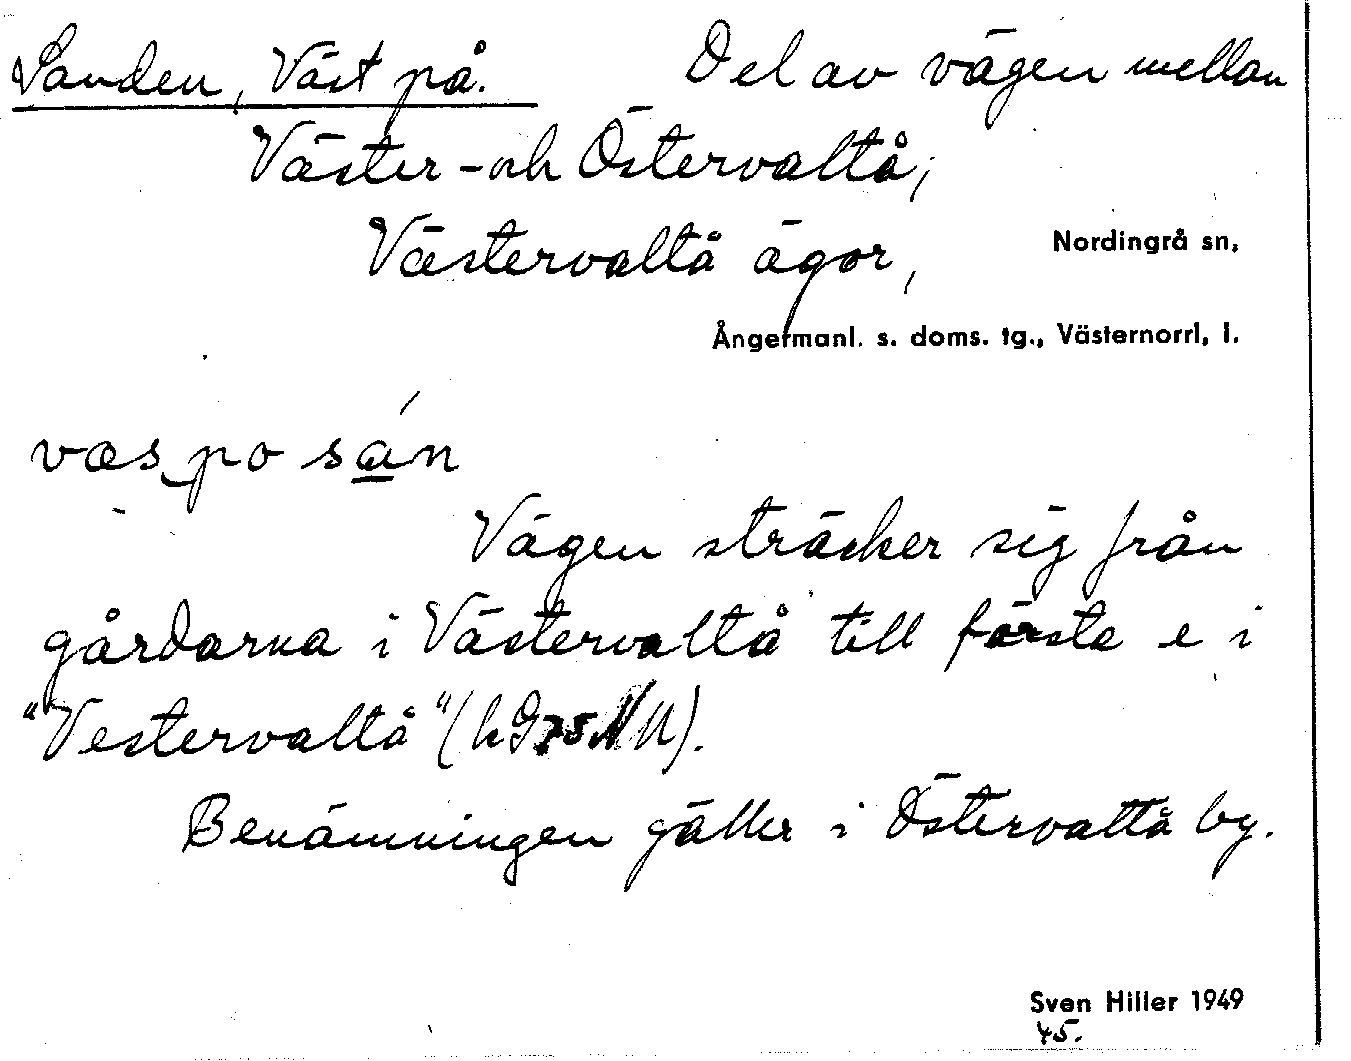 Sanden, Väst på. Del av vägen mellan
Väster- och Östervaltå;
Västervaltå ägor,
Nordingrå sn,
Ångermanl. s. doms. tg., Västernorrl. l.
væs po sán
Vägen sträcker sig från
gårdarna i Västervaltå till första e i
"Vestervaltå" (
Benämningen gäller i Östervaltå by.
Sven Hiller 1949
45.